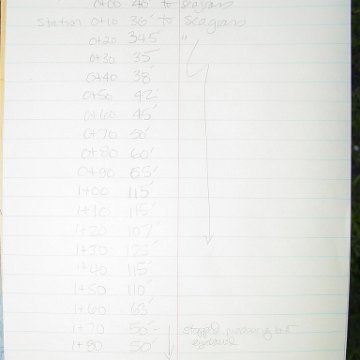 0+00 40' to seagrass
station 0+10 36' to seagrass
0+20 34.5' "
0+30 35'
0+40 38'
0+50 42'
0+60 45'
0+70 50'
0+80 60'
0+90 65'
1+00 115'
1+10 115'
1+20 107'
1+30 123'
1+40 115'
1+50 110'
1+60 63'
1+70 50' stopped measuring but
1+80 50'